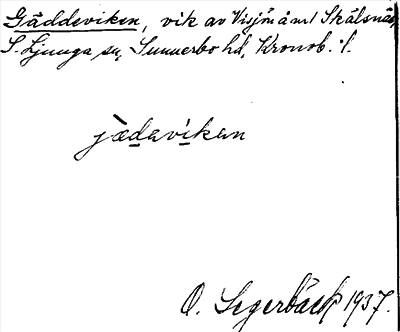 Gäddeviken, vik av Visjön åml Skålsnäs,
S. Ljunga sn, Sunnerbo hd, Kronob. l.
jàdavíkan
O. Segerbäck 1937.